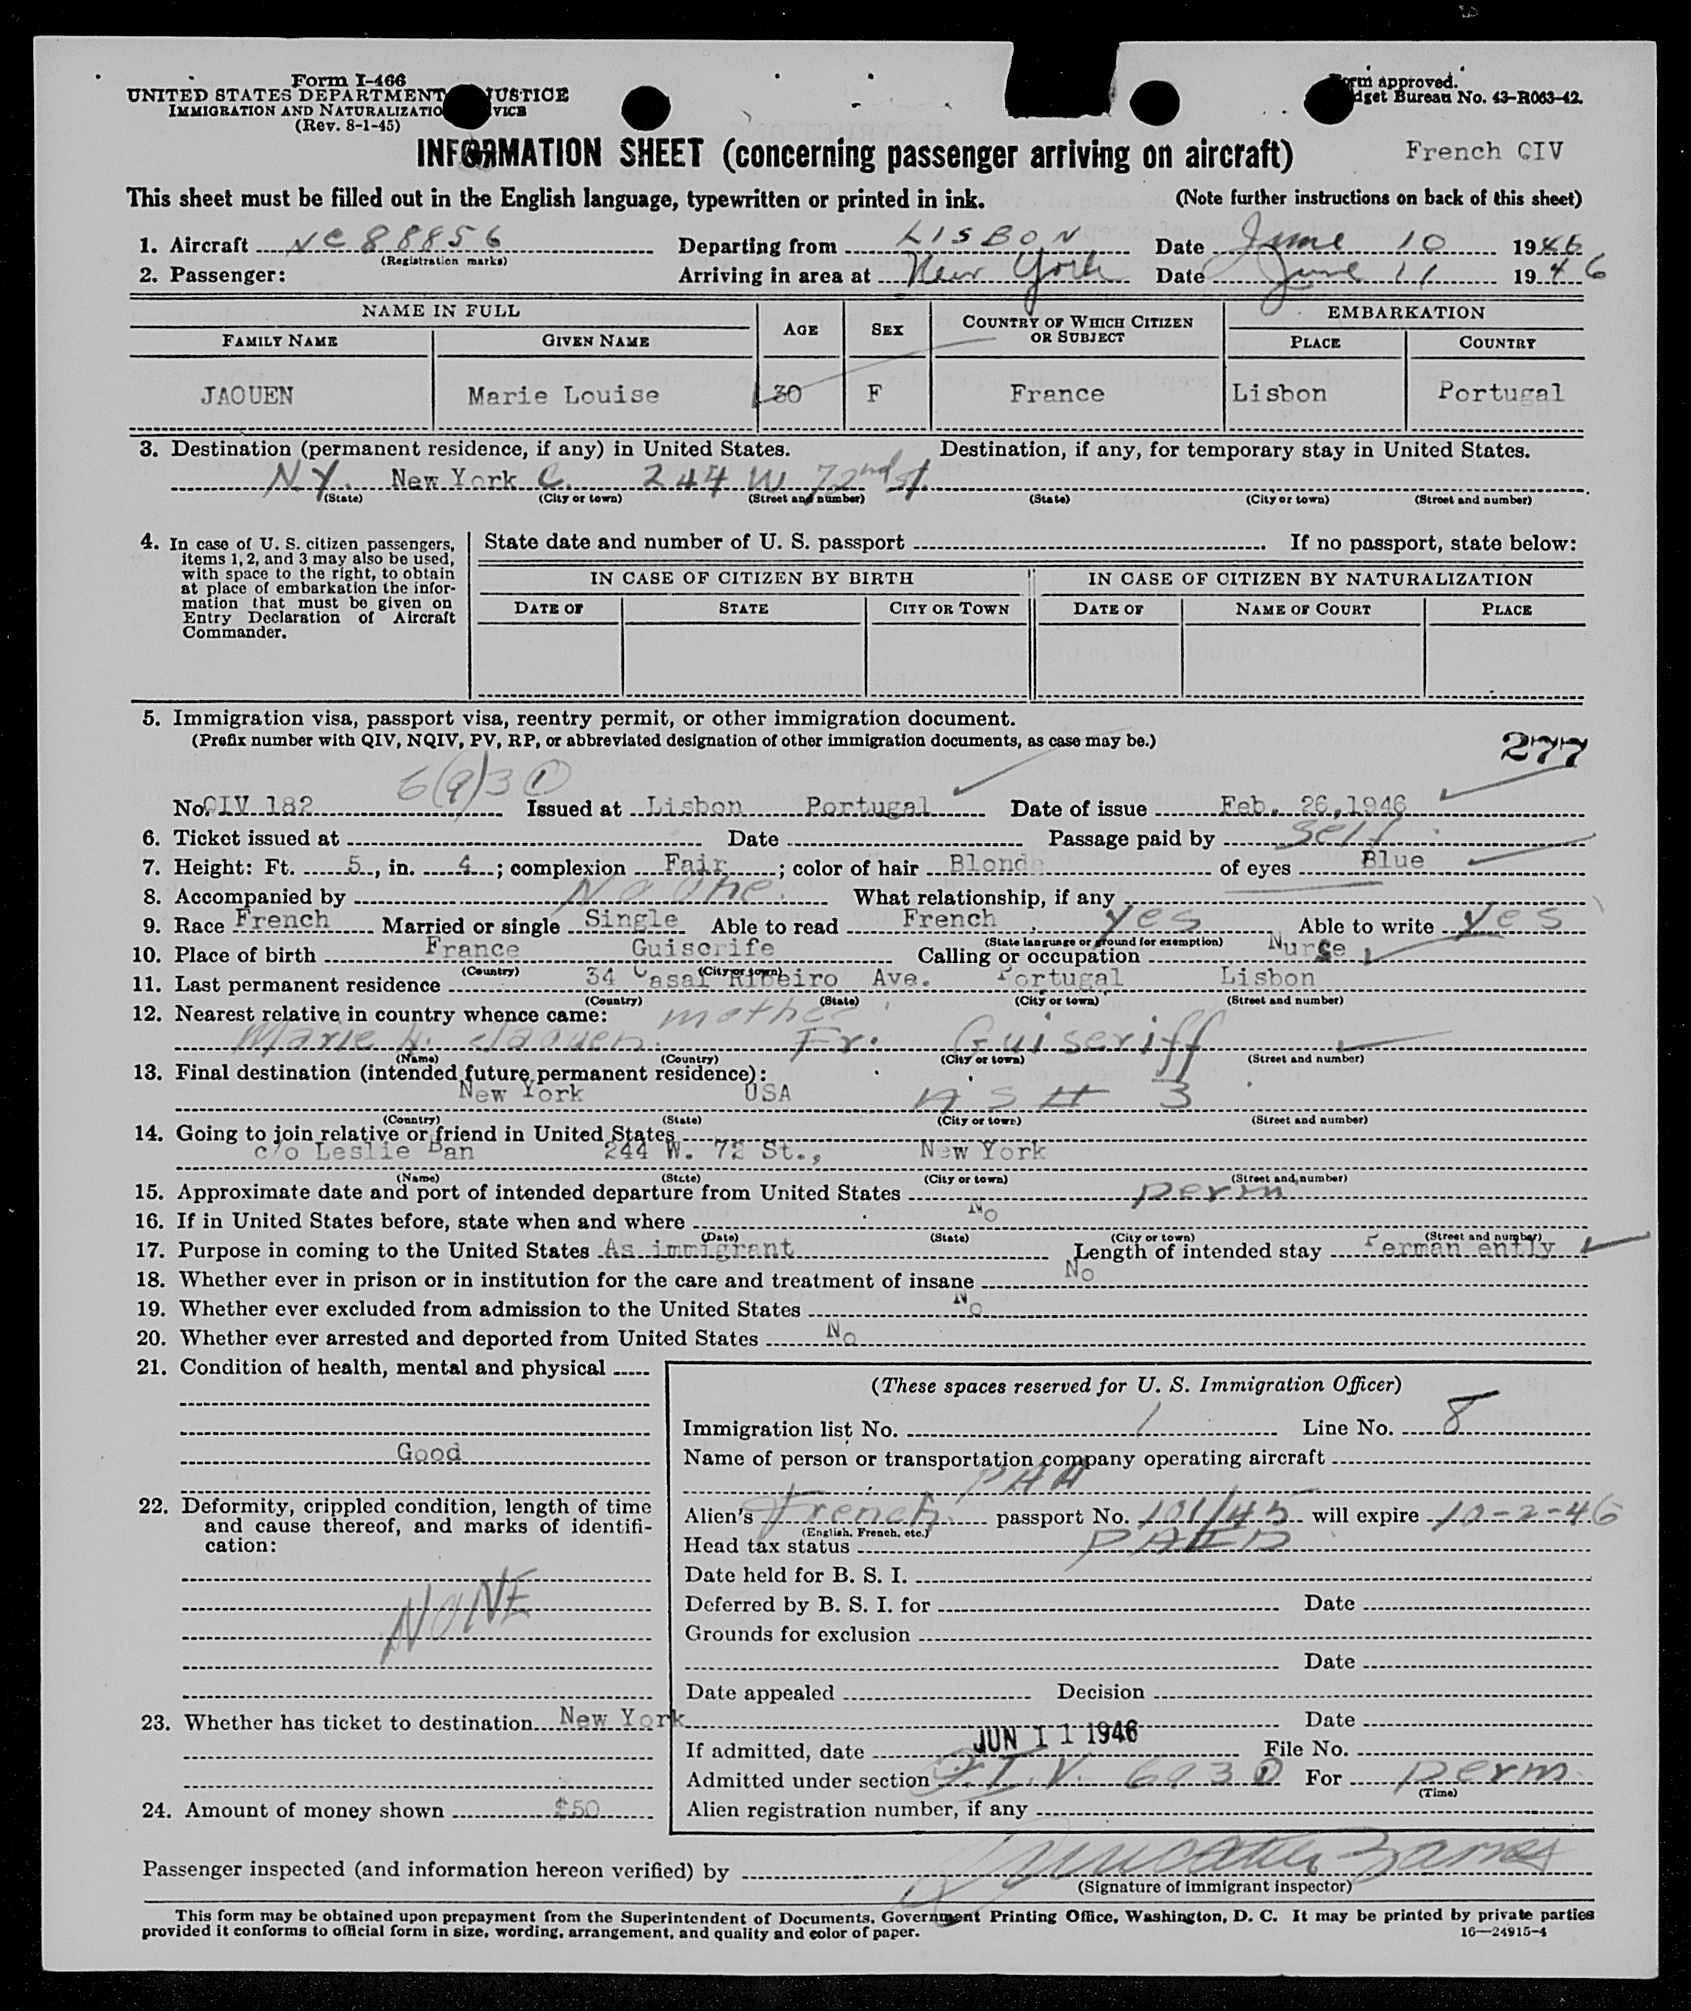 Form I-466
UNITED STATES DEPARTMENT JUSTICE
IMMIGRATION AND NATURALIZATIO VICE
(Rev. 8-1-45)
Form approved.
dget Bureau No. 43-R063-42.
INFORMATION SHEET (concerning passenger arriving on aircraft)
French QIV
This sheet must be filled out in the English language, typewritten or printed in ink. (Note further instructions on back of this sheet)
1. Aircraft NC88856 Departing from LISBON Date June 10 1946
(Registration marks)
2. Passenger: Arriving in area at New York Date June 11 1946
NAME IN FULL AGE SEX COUNTRY OF WHICH CITIZEN OR SUBJECT EMBARKATION
FAMILY NAME GIVEN NAME PLACE COUNTRY
JAOUEN Marie Louise 30 F France Lisbon Portugal
3. Destination (permanent residence, if any) in United States. Destination, if any, for temporary stay in United States.
N.Y. New York C. 244 W 72nd St.
(State) (City or town) (Street and number) (State) (City or town) (Street and number)
4. In case of U. S. citizen passengers, items 1, 2, and 3 may also be used, with space to the right, to obtain at place of embarkation the infor-mation that must be given on Entry Declaration of Aircraft Commander.
State date and number of U. S. passport If no passport, state below:
IN CASE OF CITIZEN BY BIRTH IN CASE OF CITIZEN BY NATURALIZATION
DATE OF STATE CITY OR TOWN DATE OF NAME OF COURT PLACE
5. Immigration visa, passport visa, reentry permit, or other immigration document.
(Prefix number with QIV, NQIV, PV, RP, or abbreviated designation of other immigration documents, as case may be.)
277
6(9)3 1
No. QIV 182 Issued at Lisbon Portugal Date of issue Feb. 26,1946
6. Ticket issued at Date Passage paid by Self
7. Height: Ft. 5, in. 4; complexion Fair; color of hair Blonde of eyes Blue
8. Accompanied by No One. What relationship, if any
9. Race French Married or single Single Able to read French Yes Able to write Yes
(State language or ground for exemption)
10. Place of birth France Guiscrife Calling or occupation Nurse
(Country) (City or town)
11. Last permanent residence 34 Casal Ribeiro Ave. Portugal Lisbon
(Country) (State) (City or town) (Street and number)
12. Nearest relative in country whence came: mother
Marie Jaouen. Fr. Guiseriff
(Name) (Country) (City or town) (Street and number)
13. Final destination (intended future permanent residence):
New York USA
(Country) (State) (City or town) (Street and number)
14. Going to join relative or friend in United States
c/o Leslie Pan 244 W. 72 St., New York
(Name) (State) (City or town) (Street and number)
15. Approximate date and port of intended departure from United States perm
16. If in United States before, state when and where No
(Date) (State) (City or town) (Street and number)
17. Purpose in coming to the United States As immigrant Length of intended stay Permanently
18. Whether ever in prison or in institution for the care and treatment of insane No
19. Whether ever excluded from admission to the United States No
20. Whether ever arrested and deported from United States No
21. Condition of health, mental and physical
Good
22. Deformity, crippled condition, length of time and cause thereof, and marks of identifi-cation:
NONE
23. Whether has ticket to destination New York
24. Amount of money shown $50
(These spaces reserved for U. S. Immigration Officer)
Immigration list No. 1 Line No. 8
Name of person or transportation company operating aircraft
PAA
Alien's French passport No. 101/45 will expire 10-2-46
(English, French, etc.)
Head tax status PAID
Date held for B. S. I.
Deferred by B. S. I. for Date
Grounds for exclusion
Date
Date appealed Decision
Date
If admitted, date JUN 11 1946 File No.
Admitted under section Q.I.V. 6(9)3 1 For perm
(Time)
Alien registration number, if any
Passenger inspected (and information hereon verified) by
(Signature of immigrant inspector)
This form may be obtained upon prepayment from the Superintendent of Documents, Government Printing Office, Washington, D. C. It may be printed by private parties
provided it conforms to official form in size, wording, arrangement, and quality and color of paper.
16—24915-4